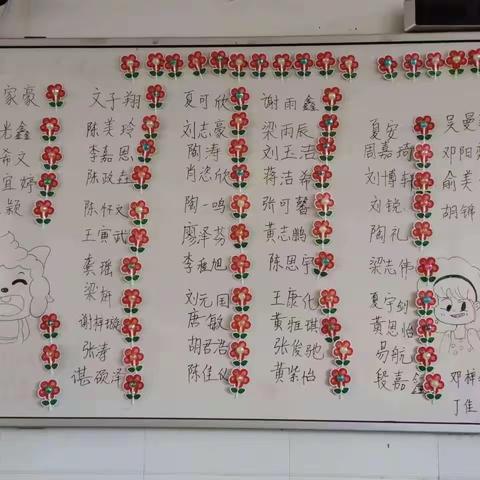 家豪 文子翔 夏可欣 谢雨鑫
光鑫 陈芙玲 刘志豪 梁雨辰 夏安 吴曼
希文 李嘉恩 陶涛 刘玉洁 周嘉琦 邓阳
宜婷 陈政垚 肖恣欣 蒋洁希 刘博轩 俞美
颖 陈怀文 陶一鸣 张可馨 刘锐 胡锦
王寅武 廖泽芬 黄志鹏 陶礼
龚瑶 李雅旭 陈思宇 梁志伟
梁妍 刘元国 王康化 夏宇剑
谢梓璇 唐敏 黄雅琪 黄思怡
张涛 胡君浩 张俊驰 易航
谌颂泽 陈佳仪 黄紫怡 段嘉鑫 邓梓
丁佳